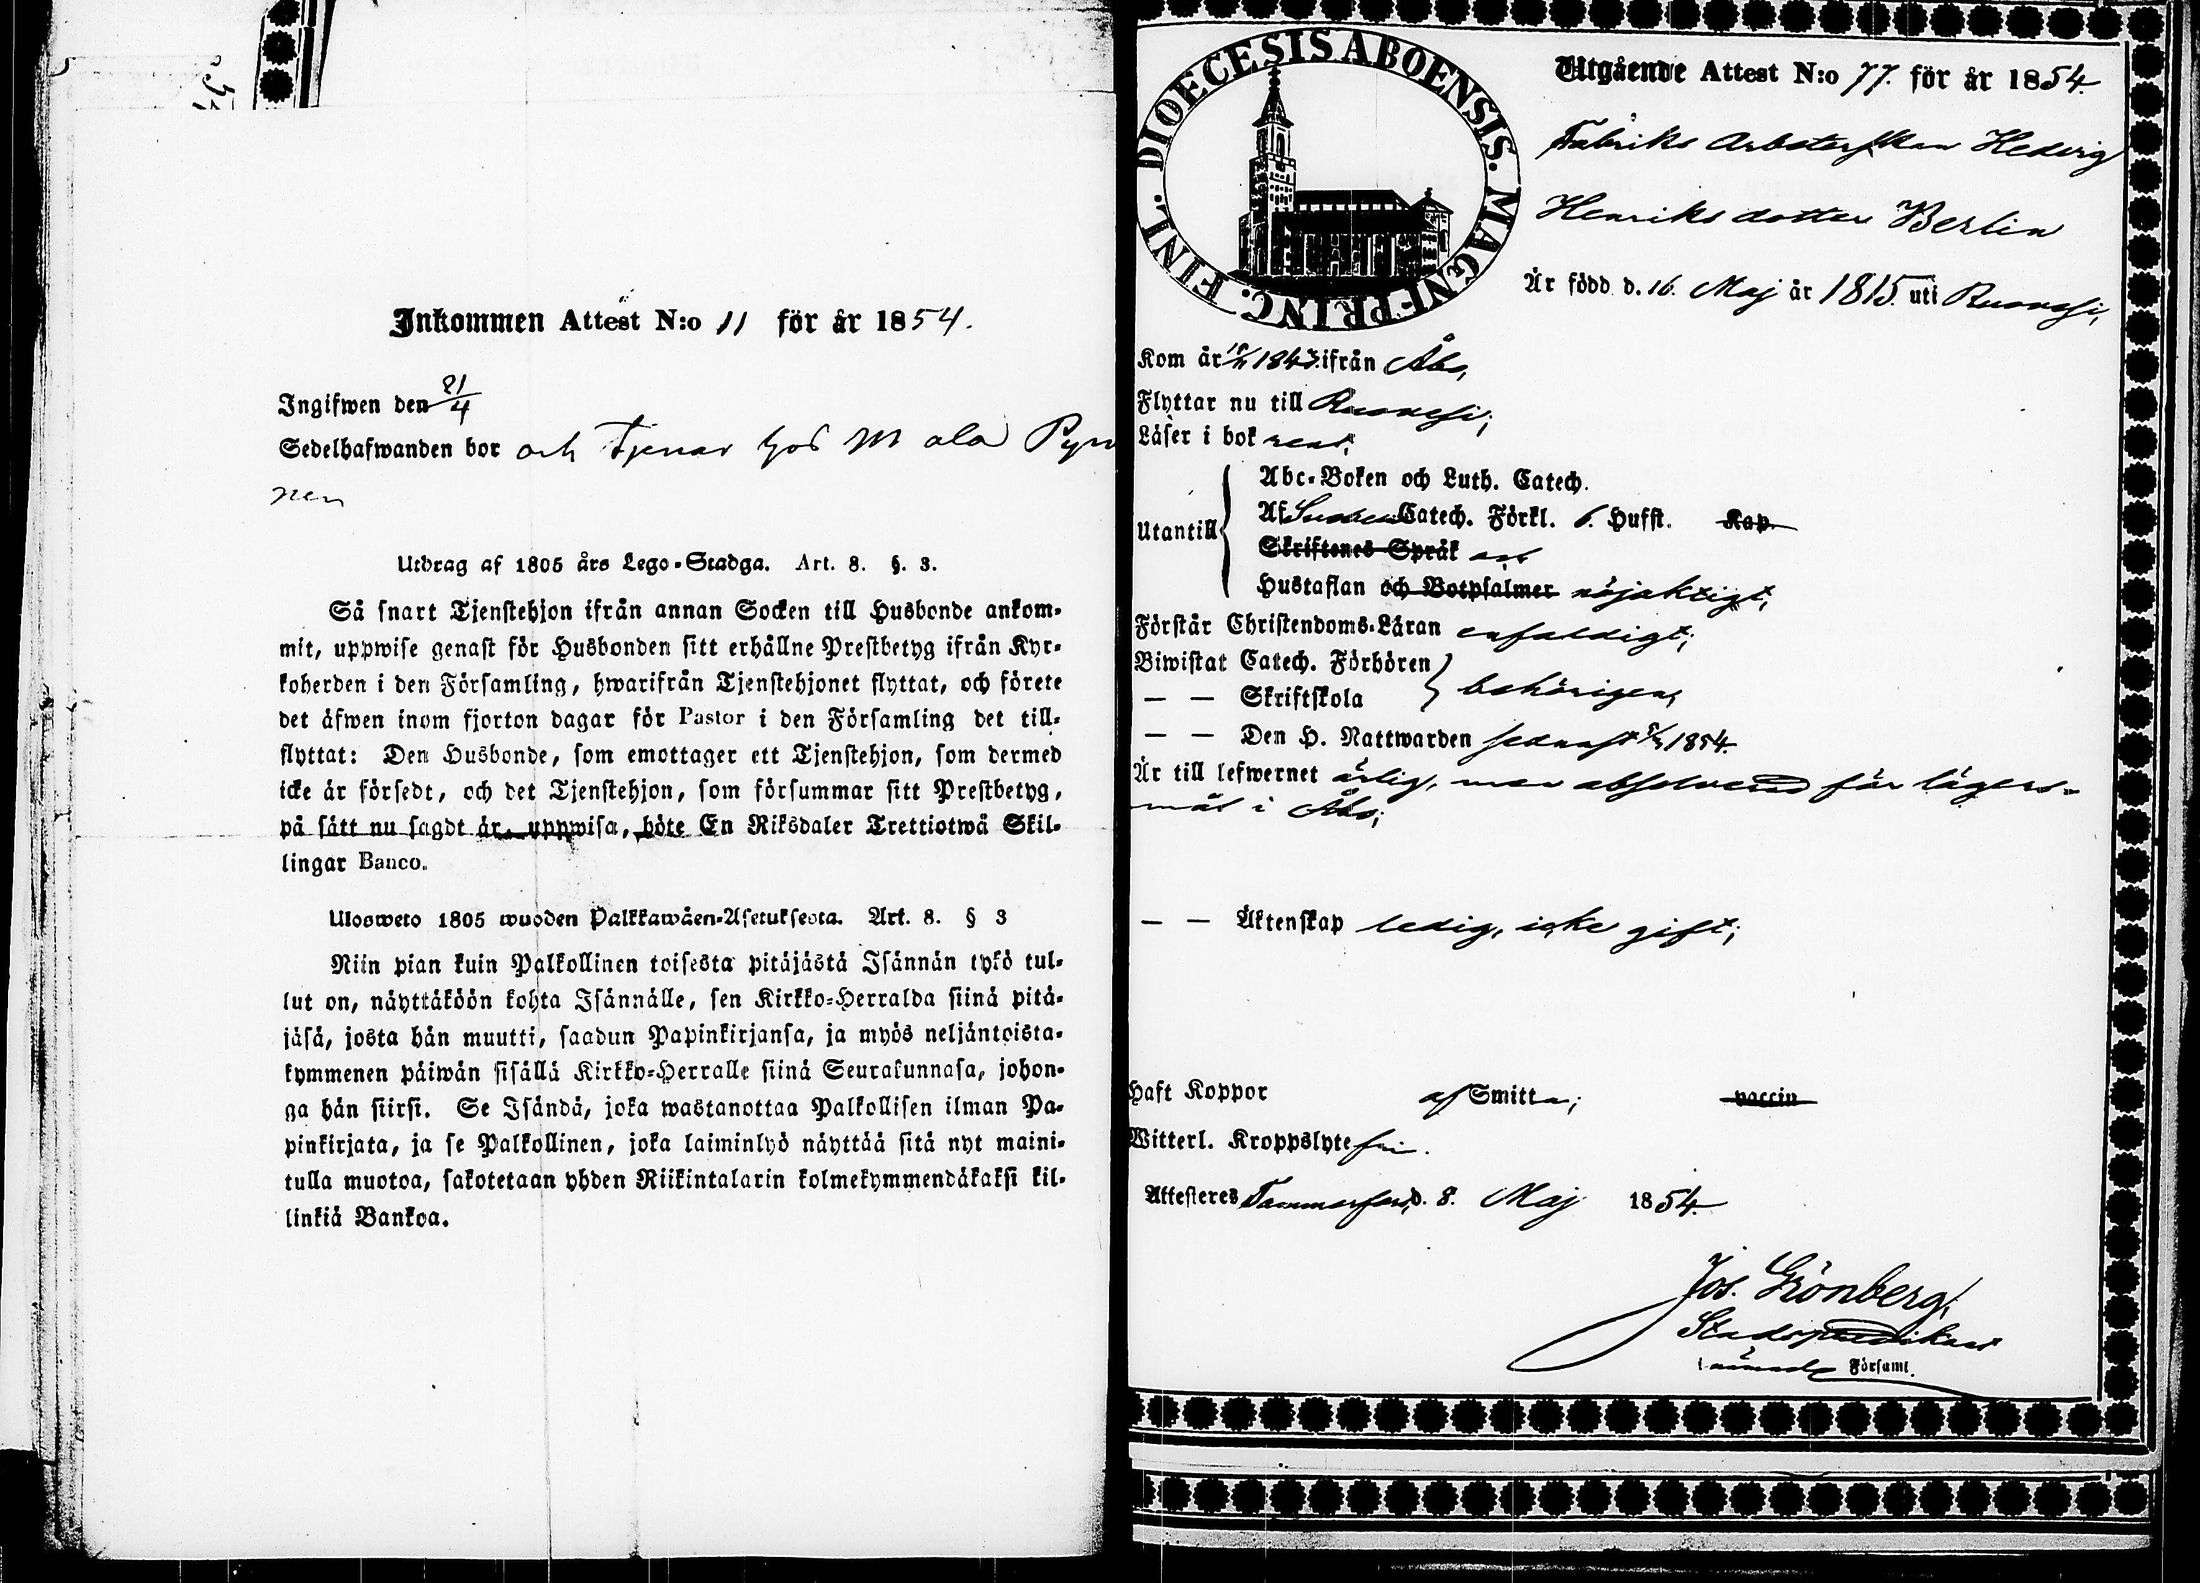 Inkommen Attest N:o 11 för år 1854.
Ingifwen den 21/4
Sedelhafwanden bor och tjenar hos M ala Pyn
nen
Utdrag af 1805 års Lego-Stadga. Art. 8. §. 3.
Så snart Tjenstehjon ifrån annan Socken till Husbonde ankom-
mit, uppwise genast för Husbonden sitt erhållne Prestbetyg ifrån Kyr-
koherden i den Församling, hwarifrån Tjenstehjonet flyttat, och förete
det äfwen inom fjorton dagar för Pastor i den Församling det till-
flyttat: Den Husbonde, som emottager ett Tjenstehjon, som dermed
icke är försedt, och det Tjenstehjon, som försummar sitt Prestbetyg,
på sätt nu sagdt är, uppwisa, böte En Riksdaler Trettiotwå Skil-
lingar Banco.
Ulosweto 1805 wuoden Palkkawäen-Asetuksesta. Art. 8. § 3
Niin pian kuin Palkollinen toisesta pitäjästä Isännän tykö tul-
lut on, näyttäköön kohta Isännälle, sen Kirkko-Herralda siinä pitä-
jäsä, josta hän muutti, saadun Papinkirjansa, ja myös neljäntoista-
kymmenen päiwän sisällä Kirkko-Herralle siinä Seurakunnasa, johon-
ga hän siirsi. Se Isändä, joka wastanottaa Palkollisen ilman Pa-
pinkirjata, ja se Palkollinen, joka laiminlyö näyttää sitä nyt maini-
tulla muotoa, sakotetaan yhden Riikintalarin kolmekymmendäkaksi kil-
linkiä Bankoa.
DIOECESIS ABOENSIS. MAGNI PRINC. FINL.
Utgående Attest N:o 77. för år 1854.
Fabriks Arbeterskan Hedvig
Henriksdotter Berlin
Är född d. 16. Maj år 1815. uti Ruovesi,
Kom år 1843. ifrån Åbo,
Flyttar nu till Ruovesi;
Läser i bok rent,
Utantill
Abc-Boken och Luth. Catech.
Af Svebelii Catech. Förkl. 6. Hufst. Kap.
Skriftenes Språk
Hustaflan och Botpsalmer nöjaktigt,
Förstår Christendoms-Läran enfaldigt;
Biwistat Catech. Förhören
— — Skriftskola behörigen,
— — Den H. Nattwarden sednast 1854.
Är till lefwernet ärlig, men absolverad för lägers-
mål i Åbo;
— — Äktenskap ledig, icke gift;
Haft Koppor af Smitta; vaccin
Witterl. Kroppslyte fri.
Attesteres Tammerfors, d. 8. Maj 1854.
Jos. Grönberg,
Stadspredikant
i nämnde Församl.